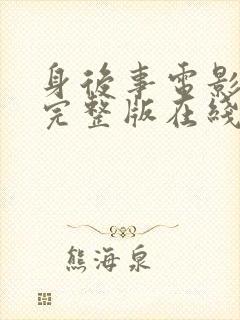 身後事電影
完整版在綫
熊海泉